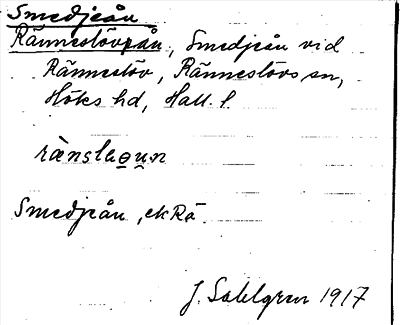 Smedjeån
Rännestövsån, Smedjeån vid
Rännestöv, Rännestövs sn,
Höks hd, Hall. l.
ränslao̱u̯n
Smedjeån, ekRä
J. Sahlgren 1917